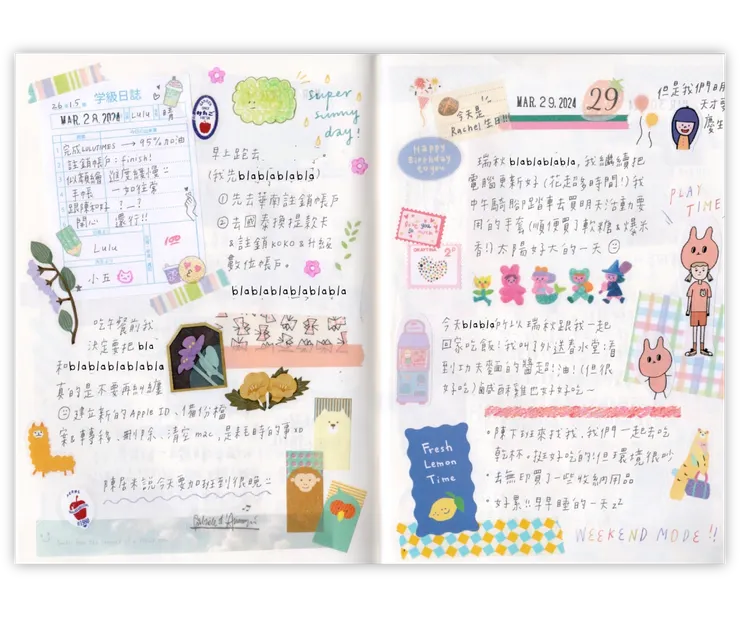 學級日誌
MAR. 28. 2024
Lulu
晴
完成LULUTIMES → 95%加油
註銷帳戶: finish!
手帳
一如往常
跟陳和好 ?-?
開心 還行!!
Lulu
100
小五
super
sunny
day!
早上跑去
(我先blablablabla)
① 先去華南註銷帳戶
② 去國泰換提款卡
& 註銷 KOKO & 升級
數位帳戶。
blablablablablabla
吃午餐前我
決定要把 bla
和blablablablabla
真的是不要再糾纏
建立新的 Apple ID、備份檔
案 & 轉移、刪除、清空 mac, 是耗時的事 xD
陳居然說今天要加班到很晚
今天是
Rachel 生日!!!
MAR. 29. 2024
29
但是我們
天才
Happy
Birthday
to you
瑞秋 blablablabla, 我繼續把
電腦更新好 (花超多時間!) 我
中午騎腳踏車去買明天活動要
用的手套 (順便買了軟糖 & 爆米
香!) 太陽好大的一天
PLAY
TIME
今天blabla所以瑞秋跟我一起
回家吃飯! 我叫了外送春水堂, 看
到功夫麵的醬超油! (但很
好吃) 鹹酥雞也好好吃~
Fresh
Lemon
Time
• 陳下班來找我, 我們一起去吃
乾杯。挺好吃的! 但環境很吵
• 去無印買了一些收納用品
• 好累!! 早早睡的一天 zZ
WEEKEND MODE!!